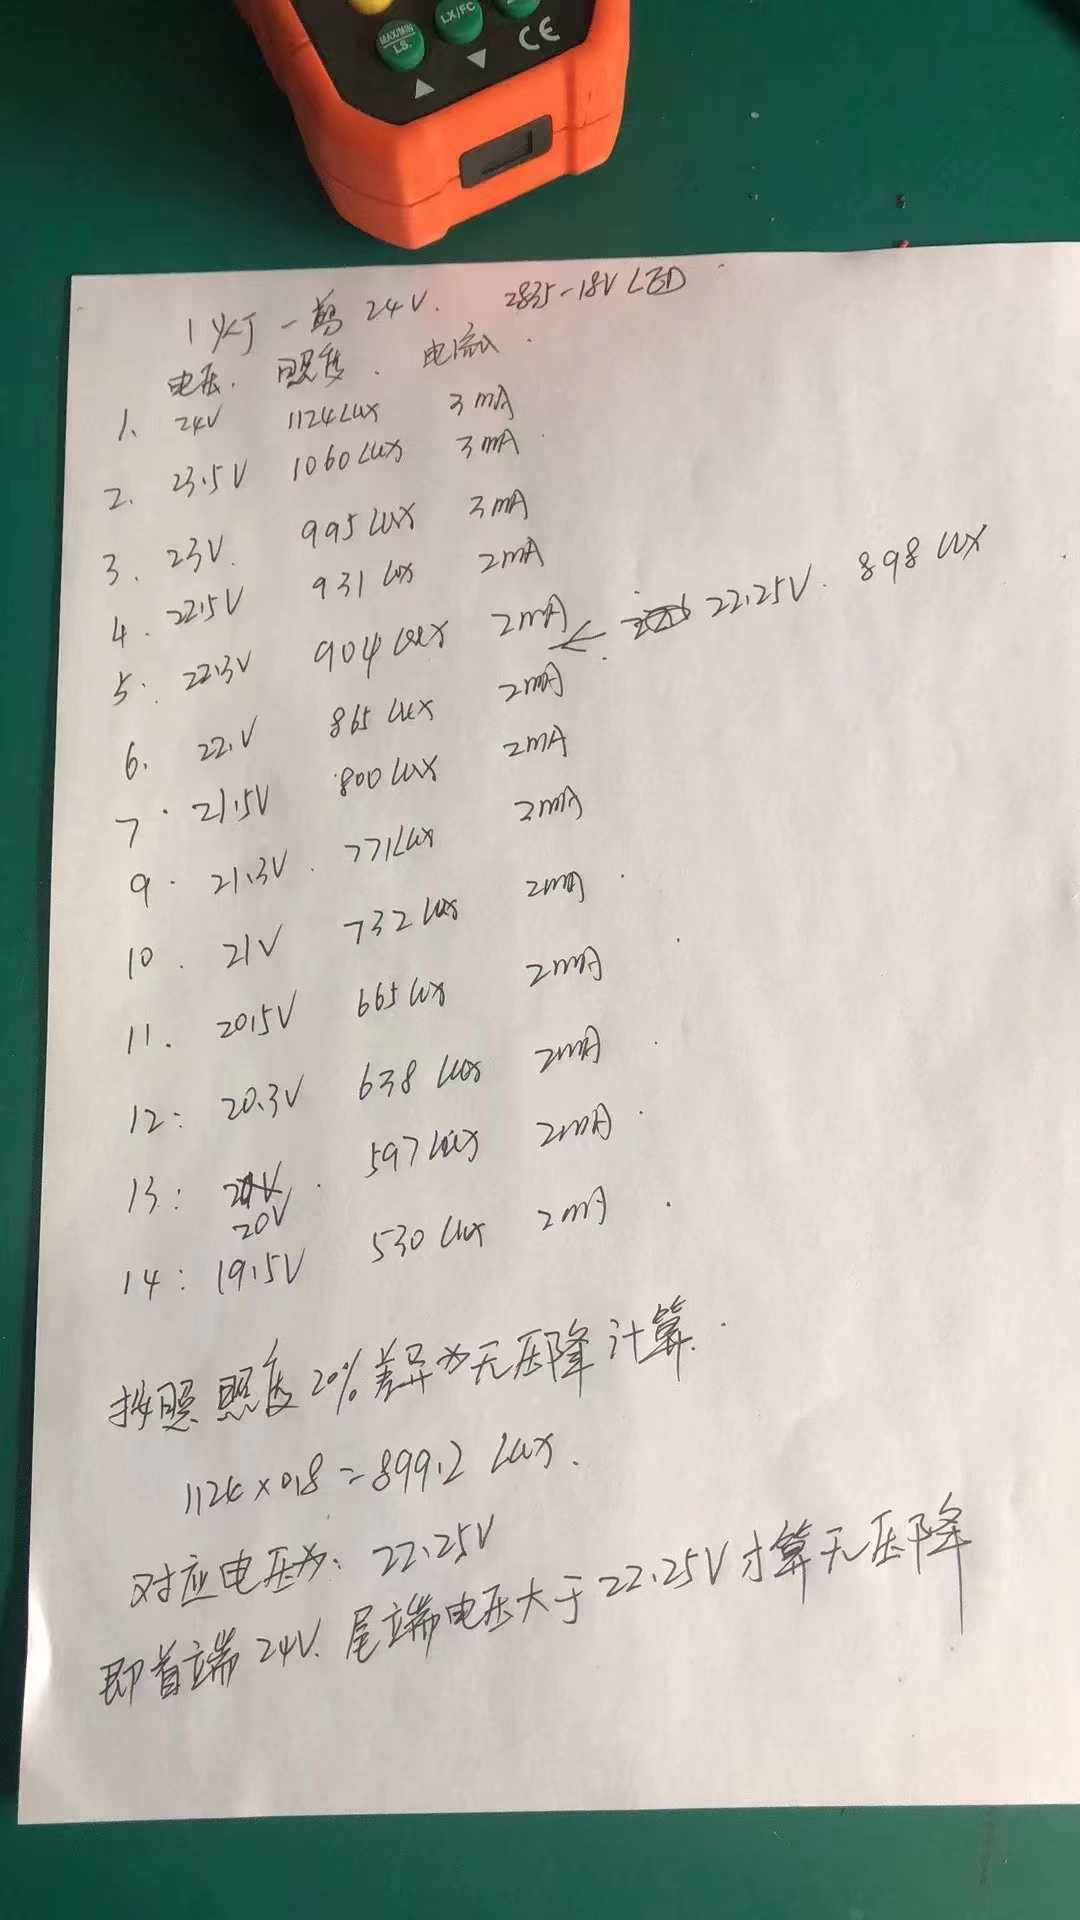 MAX/MIN
LS.
LX/FC
CE
1灯一剪 24V. 2835-18V LED
电压. 照度. 电流.
1、 24V 1124Lux 3mA
2. 23.5V 1060Lux 3mA
3. 23V. 995Lux 3mA
4. 22.5V 931Lux 2mA
5. 22.3V 904Lux 2mA ← 22.25V. 898Lux
6. 22.V 865Lux 2mA
7. 21.5V 800Lux 2mA
9. 21.3V. 771Lux 2mA
10. 21V 732Lux 2mA
11. 20.5V 665Lux 2mA
12: 20.3V 638Lux 2mA
13: 20V 597Lux 2mA
14: 19.5V 530Lux 2mA
按照照度20%差异为无压降计算.
1124×0.8=899.2 Lux.
对应电压为: 22.25V
即首端24V. 尾端电压大于22.25V才算无压降